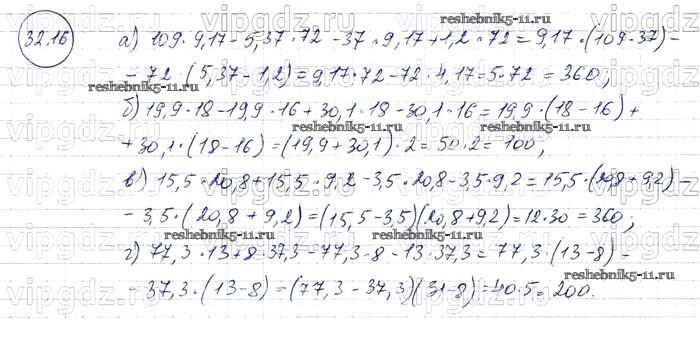 32.16
reshebnik5-11.ru
а) 109·9,17-5,37·72-37·9,17+1,2·72=9,17·(109-37)-
-72·(5,37-1,2)=9,17·72-72·4,17=5·72=360;
reshebnik5-11.ru
б) 19,9·18-19,9·16+30,1·18-30,1·16=19,9·(18-16)+
reshebnik5-11.ru
+30,1·(18-16)=(19,9+30,1)·2=50·2=100;
в) 15,5·20,8+15,5·9,2-3,5·20,8-3,5·9,2=15,5·(20,8+9,2)-
reshebnik5-11.ru
-3,5·(20,8+9,2)=(15,5-3,5)(20,8+9,2)=12·30=360;
reshebnik5-11.ru
г) 77,3·13+8·37,3-77,3·8-13·37,3=77,3·(13-8)-
reshebnik5-11.ru
-37,3·(13-8)=(77,3-37,3)(31-8)=40·5=200.
vipgdz.ru
vipgdz.ru
vipgdz.ru
vipgdz.ru